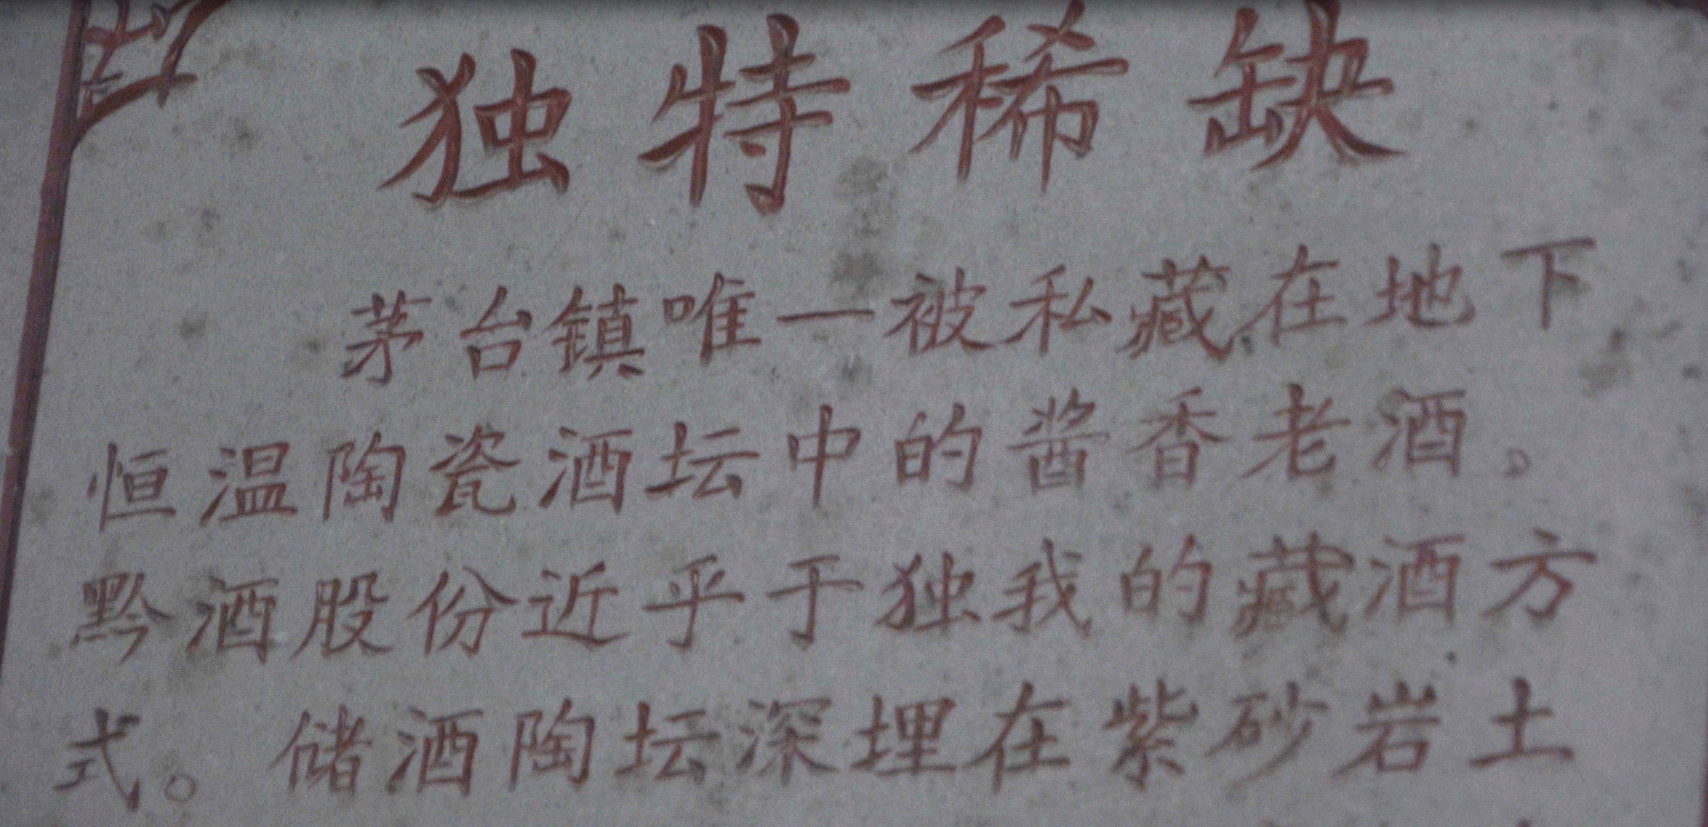 独特稀缺
茅台镇唯一被私藏在地下
恒温陶瓷酒坛中的酱香老酒。
黔酒股份近乎于独我的藏酒方
式。储酒陶坛深埋在紫砂岩土